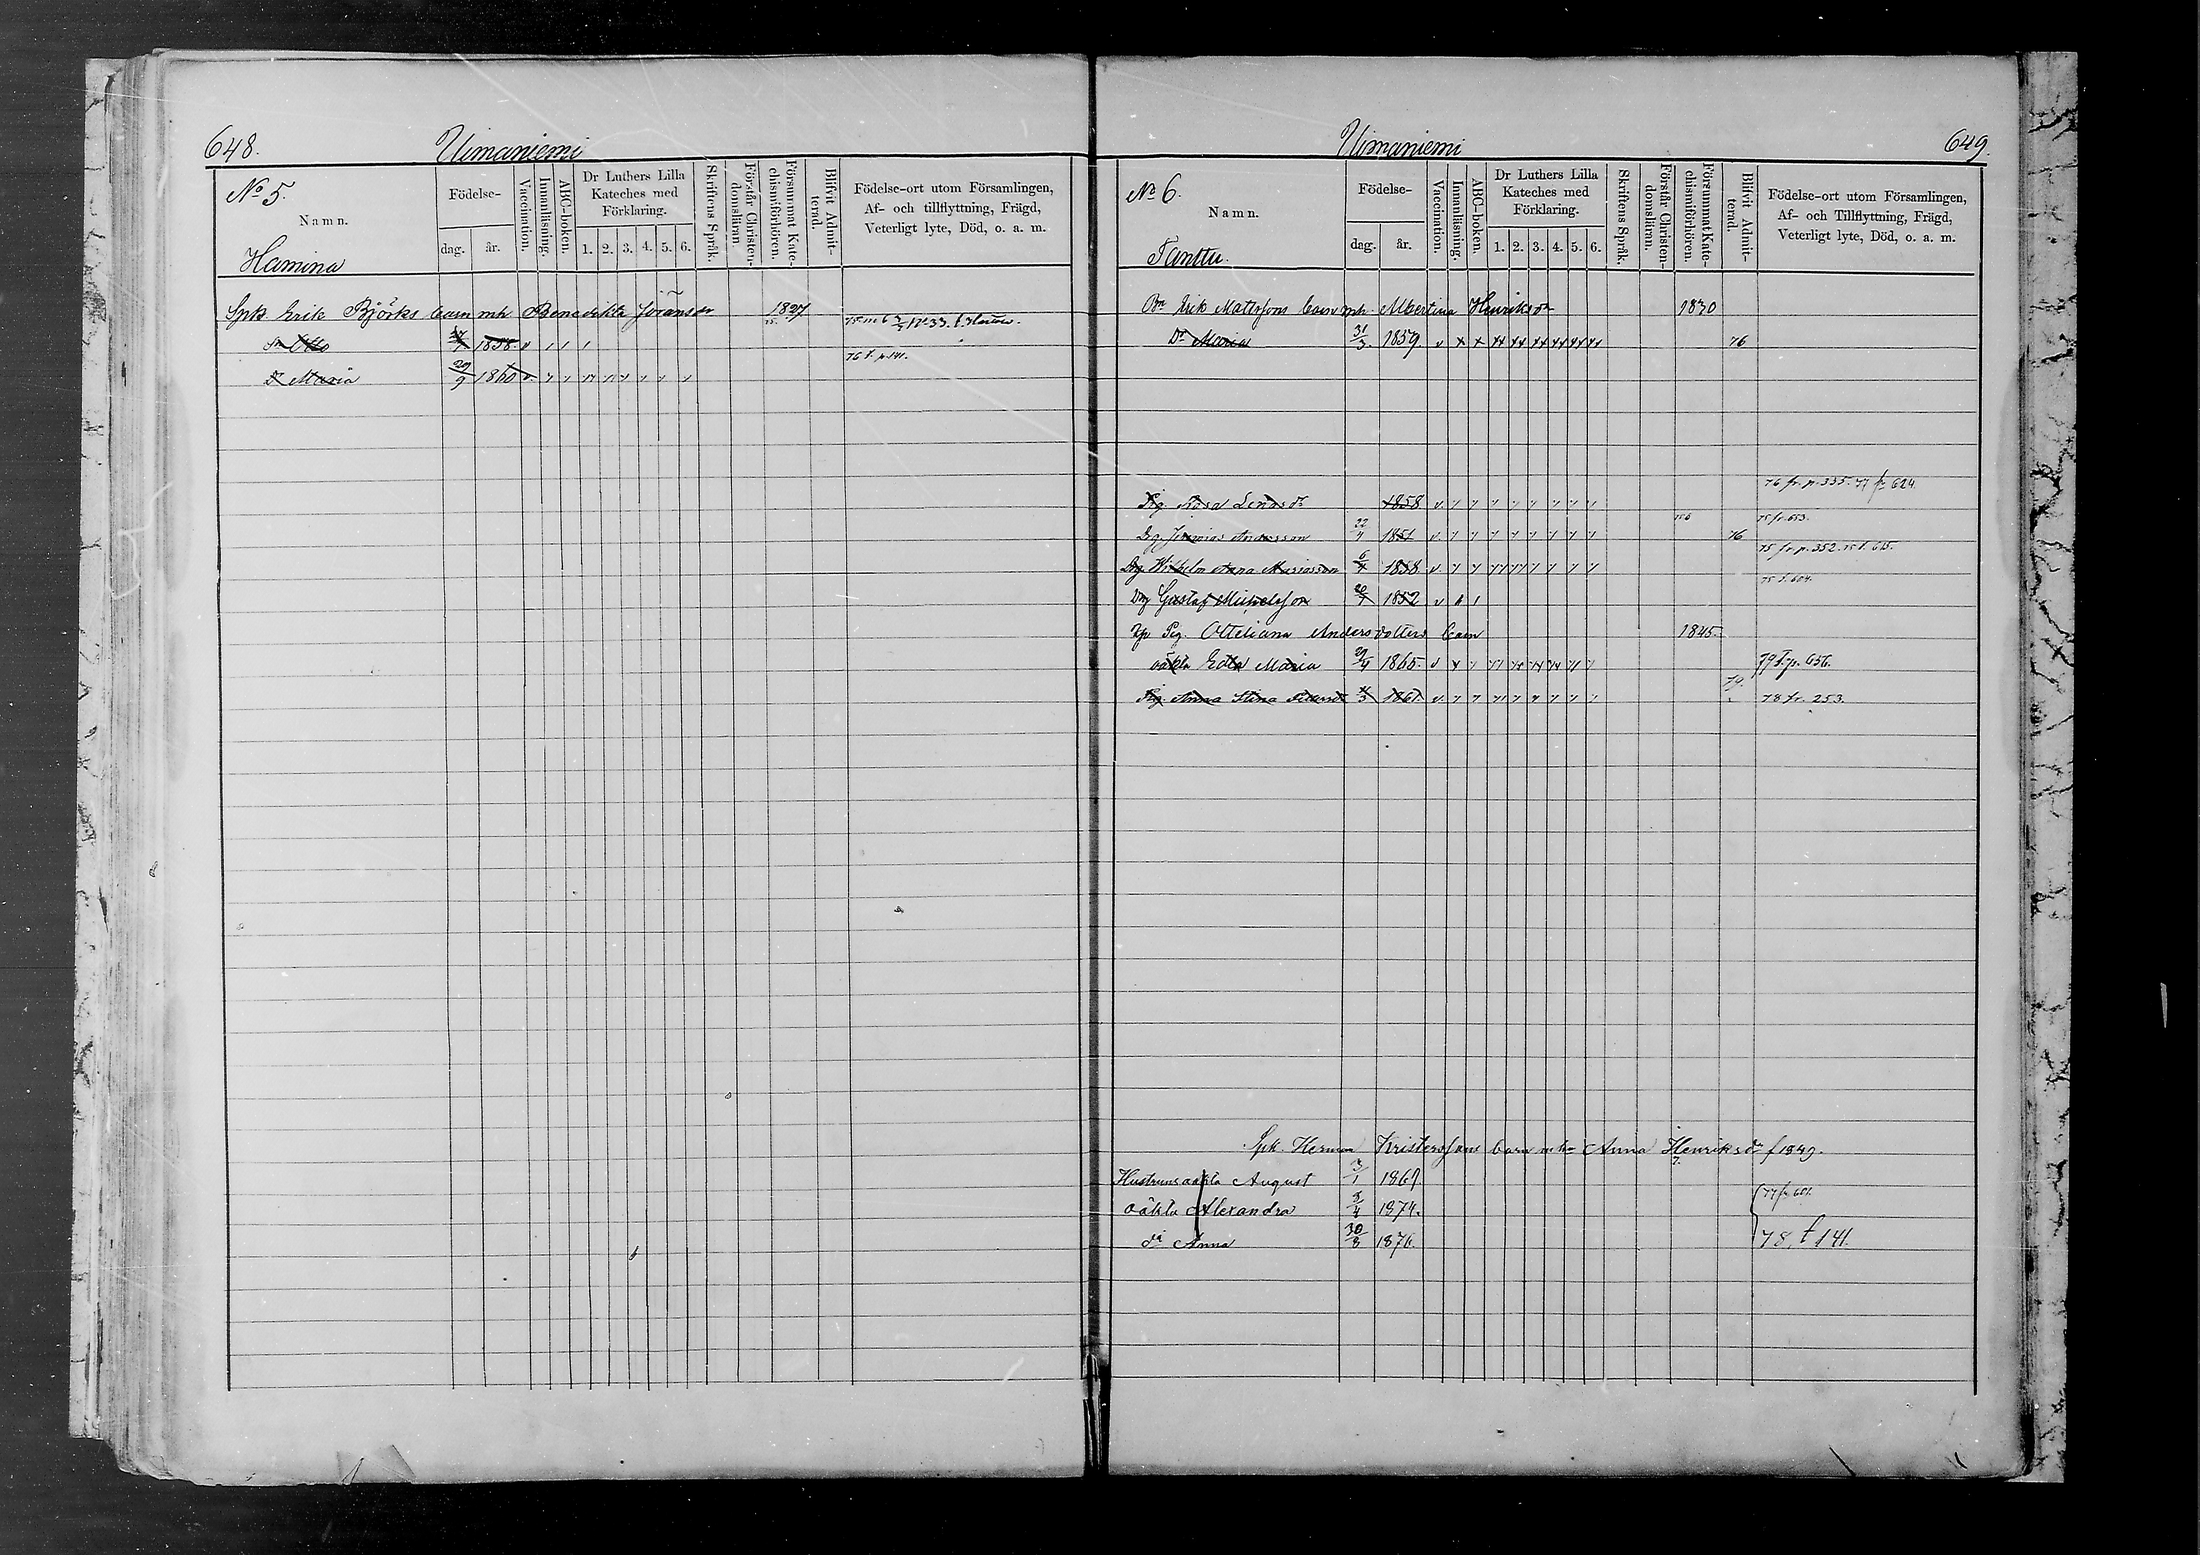 648.
Uimaniemi
No 5.
Namn.
Hamina
Födelse-
dag.
år.
Vaccination.
Innanläsning.
ABC-boken.
Dr Luthers Lilla
Kateches med
Förklaring.
1. 2. 3. 4. 5. 6.
Skriftens Språk.
Förstår Christen-
domsläran.
Försummat Kate-
chismiförhören.
Blifvit Admit-
terad.
Födelse-ort utom Församlingen,
Af- och tillflyttning, Frägd,
Veterligt lyte, Död, o. a. m.
Spk. Erik Björks barn mh Benedikta Göransdr 1827
Sn Otto 1858. v
76 t. p. 141.
Dr Maria 29/9 1860 v.
Uimaniemi
649.
No 6.
Namn.
Tanttu.
Födelse-
dag.
år.
Vaccination.
Innanläsning.
ABC-boken.
Dr Luthers Lilla
Kateches med
Förklaring.
1. 2. 3. 4. 5. 6.
Skriftens Språk.
Förstår Christen-
domsläran.
Försummat Kate-
chismiförhören.
Blifvit Admit-
terad.
Födelse-ort utom Församlingen,
Af- och Tillflyttning, Frägd,
Veterligt lyte, Död, o. a. m.
Bn Erik Mattssons barn mh. Albertina Henriksdr 1830
Dr Maria 31/3. 1859. v 76
76 fr. p. 335. 77 fr 624.
Pig. Rosa Lenasdr 1858 v.
75 fr. 653.
Drg. Jeremias Andersson 22/4 1851 v. 76
75 fr. p. 352. 75 t. 615.
Drg Wilhelm Anna Mariasson 1858 v
75 t. 604.
Drg Gustaf Michelsson 1852 v
Pig. Otteliana Andersdotters barn 1845.
oäkta Edla Maria 29/4 1865. v 79 t. p. 656.
Pig. Anna Stina 1861. v 79. 78 fr. 253.
Spk. Herman Kristerssons barn mhu Anna Henriksdr f 1849.
Hustruns oäkta August 3/1 1869.
oäkta Alexandra 1874. 77 fr 651.
dr Anna 30/8 1876. 78, t 141.